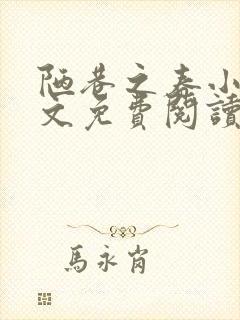 陋巷之春小
文免費閱讀
馬永肖